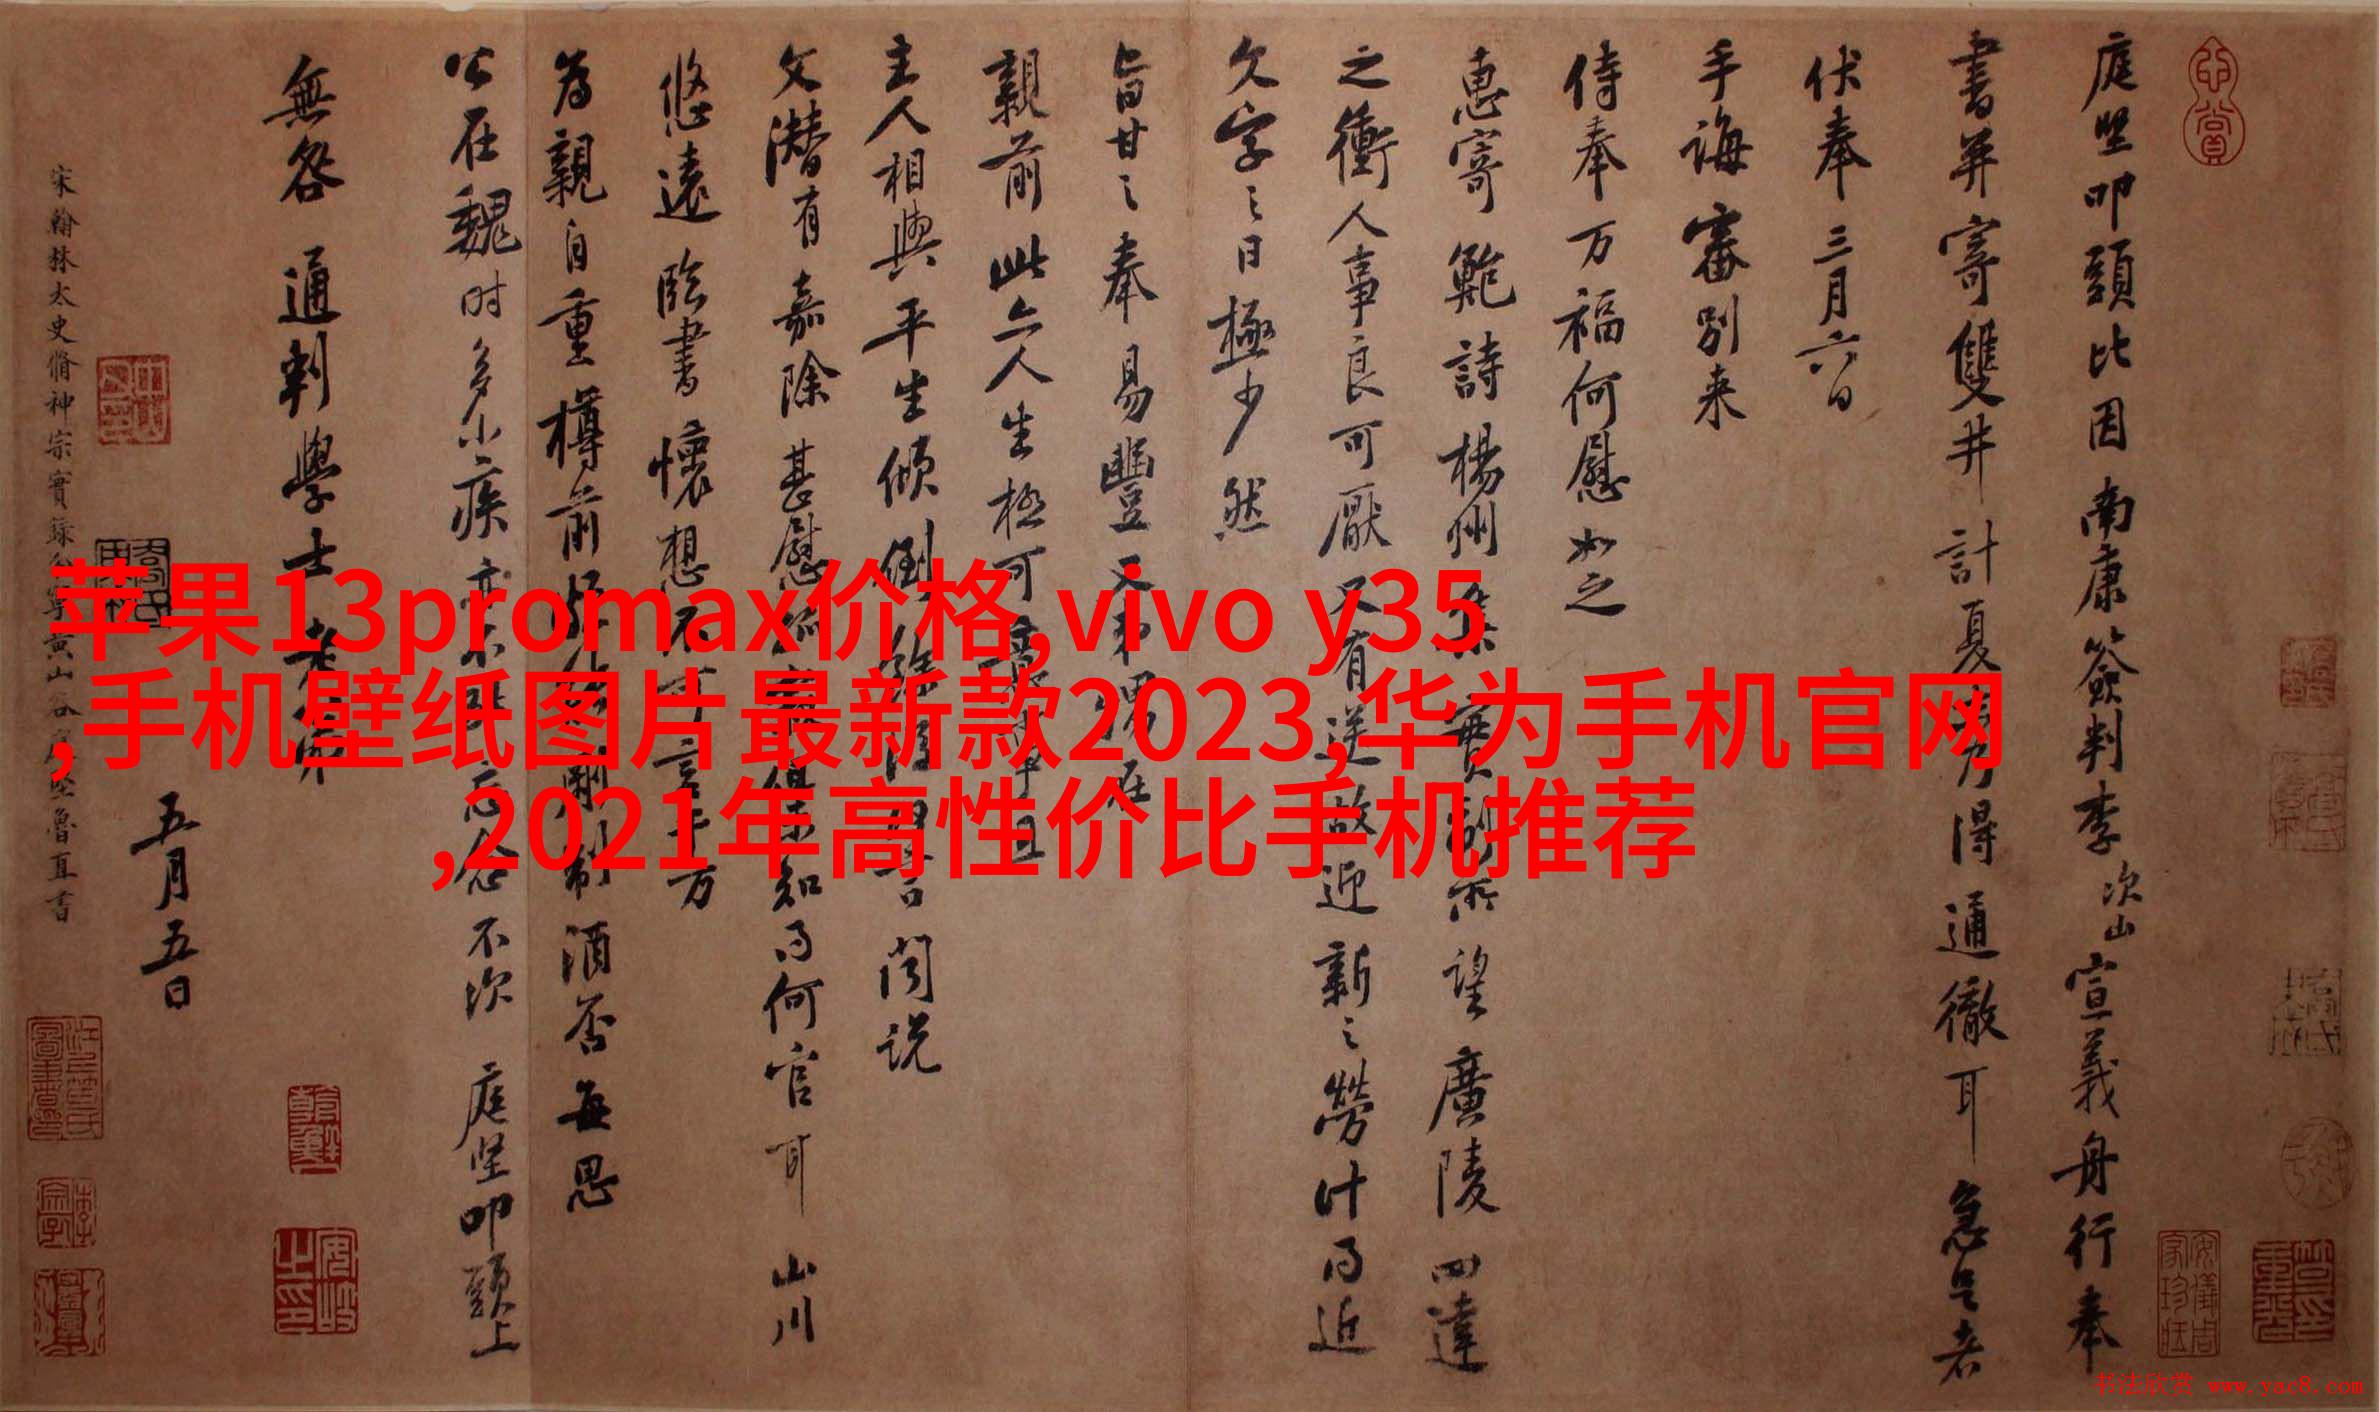 庭堅叩頭比因南康簽判李次山宣義舟行奉
書并寄雙井計夏
得通徹耳急足者
伏奉三月六日
手誨審別来
侍奉万福何慰如之
惠寄鮑詩楊州集實副所望廣陵四達
之衝人事良可厭又有送故迎新之勞計得近
文字之日極少然
旨甘之奉易豐又弟甥在
親前此亦人生極可
主人相與平生傾倒
聞説
文潜有嘉除甚慰
知得何官耳山川
悠遠臨書懷想不可言千万
為親自重樽前
制酒否無恩
公在魏时多小疾亦不
忘念不次庭堅叩頭上
無咎通判學士老弟
五月五日
宋翰林太史脩神宗實録
黄山谷
魯直書
苹果13promax价格,vivo y35
,手机壁纸图片最新款2023,华为手机官网
,2021年高性价比手机推荐
书法欣赏 www.yac8.com